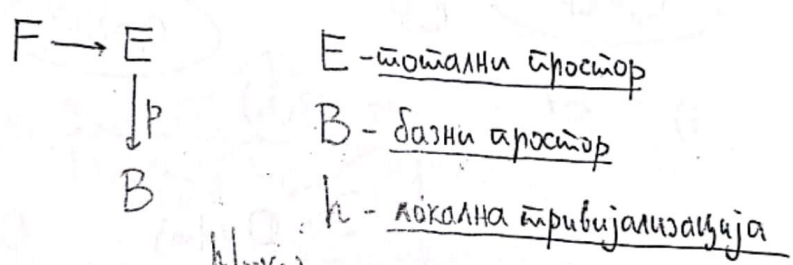 F → E
E - тотални простор
p
B - базни простор
B
h - локална тривијализација